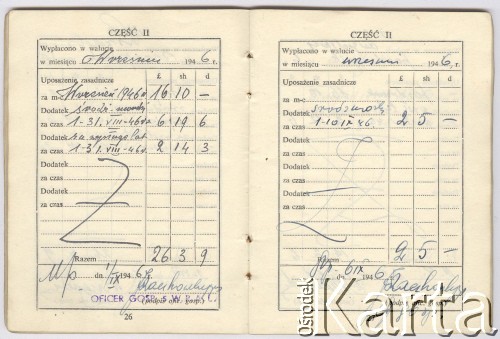 CZĘŚĆ II
Wypłacono w walucie
w miesiącu Wrzesień 1946 r.
Uposażenie zasadnicze £ sh d
za m-c Wrzesień 1946 16 10 —
Dodatek
za czas 1-31. VIII-46 6 19 6
Dodatek za wysługę lat
za czas 1-31. VIII-46 2 14 3
Dodatek
za czas
Dodatek
za czas
Razem 26 3 9
M.p. dn. 1/IX 1946
OFICER GOSP. S.W.P.
26
CZĘŚĆ II
Wypłacono w walucie
w miesiącu wrzesień 1946 r.
Uposażenie zasadnicze £ sh d
za m-c
Dodatek
za czas 1-10 IX 46 2 5 —
Dodatek
za czas
Dodatek
za czas
Dodatek
za czas
Razem 2 5 —
dn. 6/IX 1946
ośrodek
Karta